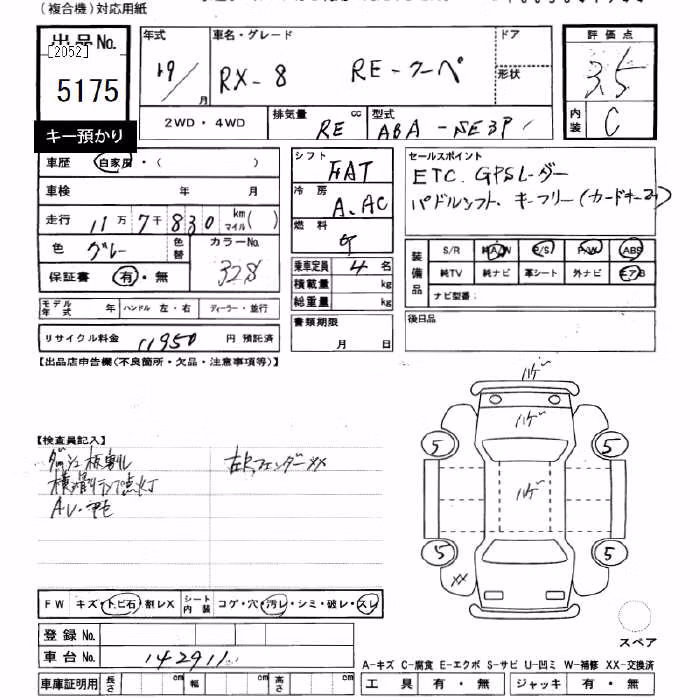 (複合機)対応用紙
出品No.
[2052]
5175
キー預かり
年式
19/
月
車名・グレード
RX-8 RE-クーペ
ドア
形状
評価点
3.5
内装
C
2WD・4WD
排気量
cc
RE
型式
ABA-SE3P
車歴 自家用・( )
車検 年 月
走行 11万 7千 830 km マイル( )
色 グレー 色替
カラーNo.
32S
保証書 有・無
シフト
FAT
冷房
A.AC
燃料
ガ
乗車定員 4 名
積載量 kg
総重量 kg
書類期限
月 日
セールスポイント
ETC. GPSレーダー
パドルシフト. キーフリー(カードキー
装備品
S/R 純A/W P/S P/W ABS
純TV 純ナビ 革シート 外ナビ エアB
ナビ型番:
後日品
モデル年式 年 ハンドル 左・右 ディーラー・並行
リサイクル料金 11950 円 預託済
【出品店申告欄(不良箇所・欠品・注意事項等)】
【検査員記入】
ランプ点灯
左Fフェンダー XX
ハゲ
ハゲ
ハゲ
5 5
5 5
XX
スペア
FW キズ・トビ石・割レX シート内装 コゲ・穴・汚レ・シミ・破レ・スレ
登録 No.
車台 No. 142911
車庫証明用 長さ cm 幅 cm 高さ cm
A-キズ C-腐食 E-エクボ S-サビ U-凹ミ W-補修 XX-交換済
工具 有・無 ジャッキ 有・無